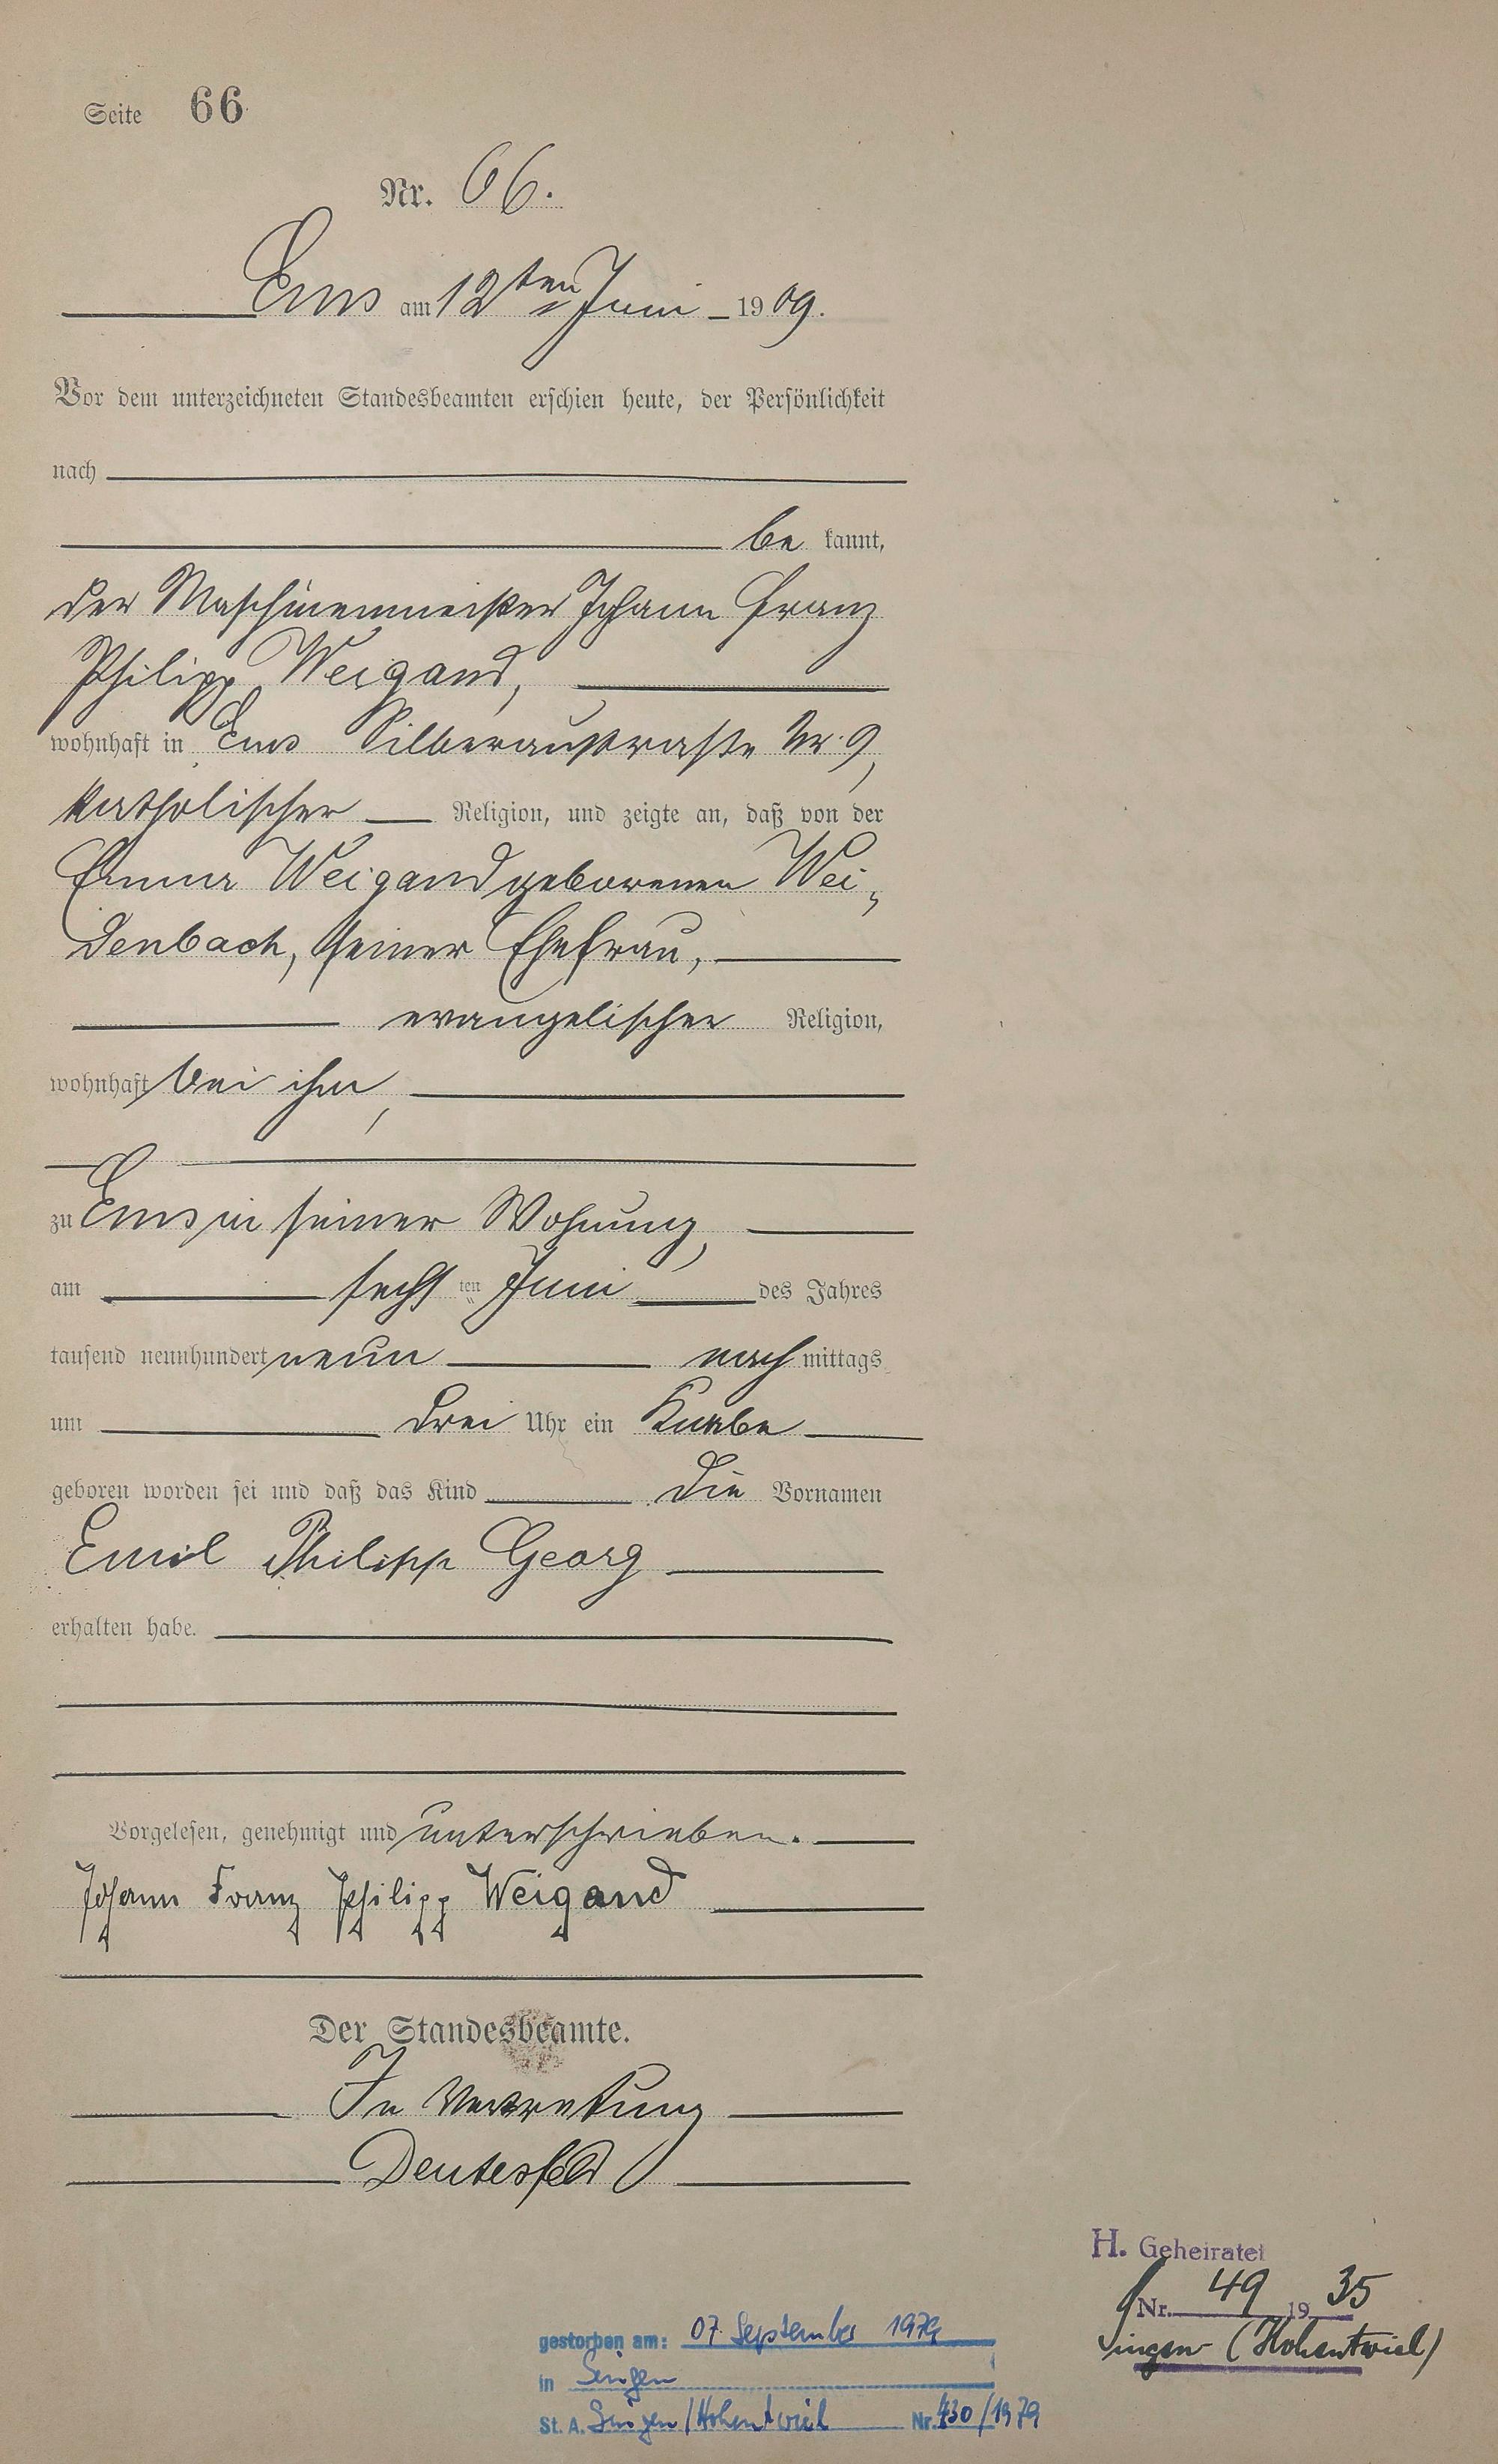 Seite 66
Nr. 66.
Ems am 12ten Juni 1909.
Vor dem unterzeichneten Standesbeamten erschien heute, der Persönlichkeit
nach
be kannt,
der Maschinenmeister Johann Franz
Philipp Weigand,
wohnhaft in Ems Silberaustraße Nr. 9,
katholischer Religion, und zeigte an, daß von der
Emma Weigand geborenen Wei-
denbach, seiner Ehefrau,
evangelischer Religion,
wohnhaft bei ihm,
zu Ems in seiner Wohnung,
am sechsten Juni des Jahres
tausend neunhundert neun nachmittags
um drei Uhr ein Knabe
geboren worden sei und daß das Kind die Vornamen
Emil Philipp Georg
erhalten habe.
Vorgelesen, genehmigt und unterschrieben.
Johann Franz Philipp Weigand
Der Standesbeamte.
In Vertretung
Deutesfeld
H. Geheiratet
Nr. 49 1935
Singen (Hohentwiel)
gestorben am: 07. September 1979
in Singen
St. A. Singen/Hohentwiel Nr. 430/1979